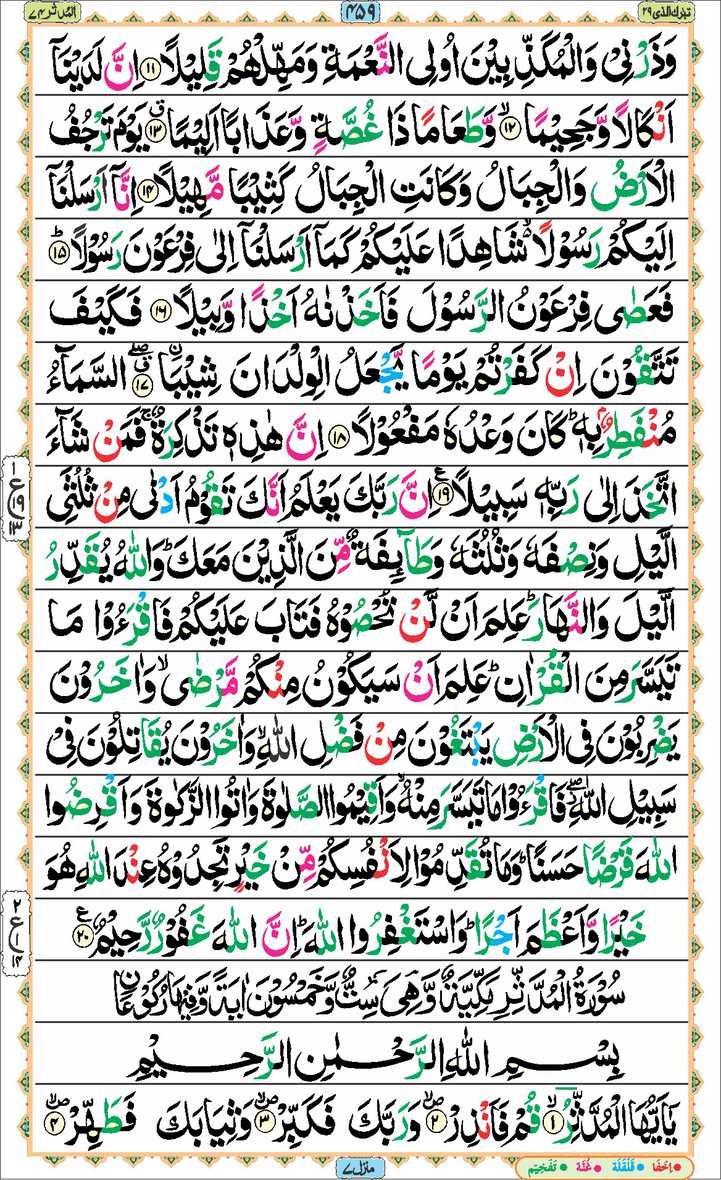 تبٰرک الذی ۲۹ ۴۵۹ المدثر ۷۴
وَذَرۡنِىۡ وَالۡمُكَذِّبِيۡنَ اُولِى النَّعۡمَةِ وَمَهِّلۡهُمۡ قَلِيۡلًا ۱۱ اِنَّ لَدَيۡنَاۤ
اَنۡكَالًا وَّجَحِيۡمًا ۙ ۱۲ وَّطَعَامًا ذَا غُصَّةٍ وَّعَذَابًا اَلِيۡمًا ق ۱۳ يَوۡمَ تَرۡجُفُ
الۡاَرۡضُ وَالۡجِبَالُ وَكَانَتِ الۡجِبَالُ كَثِيۡبًا مَّهِيۡلًا ۱۴ اِنَّاۤ اَرۡسَلۡنَاۤ
اِلَيۡكُمۡ رَسُوۡلًا ۙ شَاهِدًا عَلَيۡكُمۡ كَمَاۤ اَرۡسَلۡنَاۤ اِلٰى فِرۡعَوۡنَ رَسُوۡلًا ؕ ۱۵
فَعَصٰى فِرۡعَوۡنُ الرَّسُوۡلَ فَاَخَذۡنٰهُ اَخۡذًا وَّبِيۡلًا ۱۶ فَكَيۡفَ
تَتَّقُوۡنَ اِنۡ كَفَرۡتُمۡ يَوۡمًا يَّجۡعَلُ الۡوِلۡدَانَ شِيۡبَا ۨ ۖ ق ۱۷ السَّمَآءُ
مُنۡفَطِرٌۢ بِهٖ ؕ كَانَ وَعۡدُهٗ مَفۡعُوۡلًا ۱۸ اِنَّ هٰذِهٖ تَذۡكِرَةٌ ۚ فَمَنۡ شَآءَ
اتَّخَذَ اِلٰى رَبِّهٖ سَبِيۡلًا ع ۱۹ اِنَّ رَبَّكَ يَعۡلَمُ اَنَّكَ تَقُوۡمُ اَدۡنٰى مِنۡ ثُلُثَىِ
الَّيۡلِ وَنِصۡفَهٗ وَثُلُثَهٗ وَطَآٮِٕفَةٌ مِّنَ الَّذِيۡنَ مَعَكَ ؕ وَاللّٰهُ يُقَدِّرُ
الَّيۡلَ وَالنَّهَارَ ؕ عَلِمَ اَنۡ لَّنۡ تُحۡصُوۡهُ فَتَابَ عَلَيۡكُمۡ فَاقۡرَءُوۡا مَا
تَيَسَّرَ مِنَ الۡقُرۡاٰنِ ؕ عَلِمَ اَنۡ سَيَكُوۡنُ مِنۡكُمۡ مَّرۡضٰى ۙ وَاٰخَرُوۡنَ
يَضۡرِبُوۡنَ فِى الۡاَرۡضِ يَبۡتَغُوۡنَ مِنۡ فَضۡلِ اللّٰهِ ۙ وَاٰخَرُوۡنَ يُقَاتِلُوۡنَ فِىۡ
سَبِيۡلِ اللّٰهِ ۖ فَاقۡرَءُوۡا مَا تَيَسَّرَ مِنۡهُ ۙ وَاَقِيۡمُوا الصَّلٰوةَ وَاٰتُوا الزَّكٰوةَ وَاَقۡرِضُوا
اللّٰهَ قَرۡضًا حَسَنًا ؕ وَمَا تُقَدِّمُوۡا لِاَنۡفُسِكُمۡ مِّنۡ خَيۡرٍ تَجِدُوۡهُ عِنۡدَ اللّٰهِ هُوَ
خَيۡرًا وَّاَعۡظَمَ اَجۡرًا ؕ وَاسۡتَغۡفِرُوا اللّٰهَ ؕ اِنَّ اللّٰهَ غَفُوۡرٌ رَّحِيۡمٌ ع ۲۰
سُوۡرَةُ الۡمُدَّثِّرِ مَكِّيَّةٌ وَّهِىَ سِتٌّ وَّخَمۡسُوۡنَ اٰيَةً وَّفِيۡهَا رُكُوۡعَانِ
بِسۡمِ اللّٰهِ الرَّحۡمٰنِ الرَّحِيۡمِ
يٰۤاَيُّهَا الۡمُدَّثِّرُ ۙ ۱ قُمۡ فَاَنۡذِرۡ ۙ ۲ وَرَبَّكَ فَكَبِّرۡ ۙ ۳ وَثِيَابَكَ فَطَهِّرۡ ۙ ۴
۱ ع ۱۹ ۱۳
۲ ع ۱ ۱۴
منزل ۷
اِخفَا قَلقَلَة غُنَّة تَفخِيم